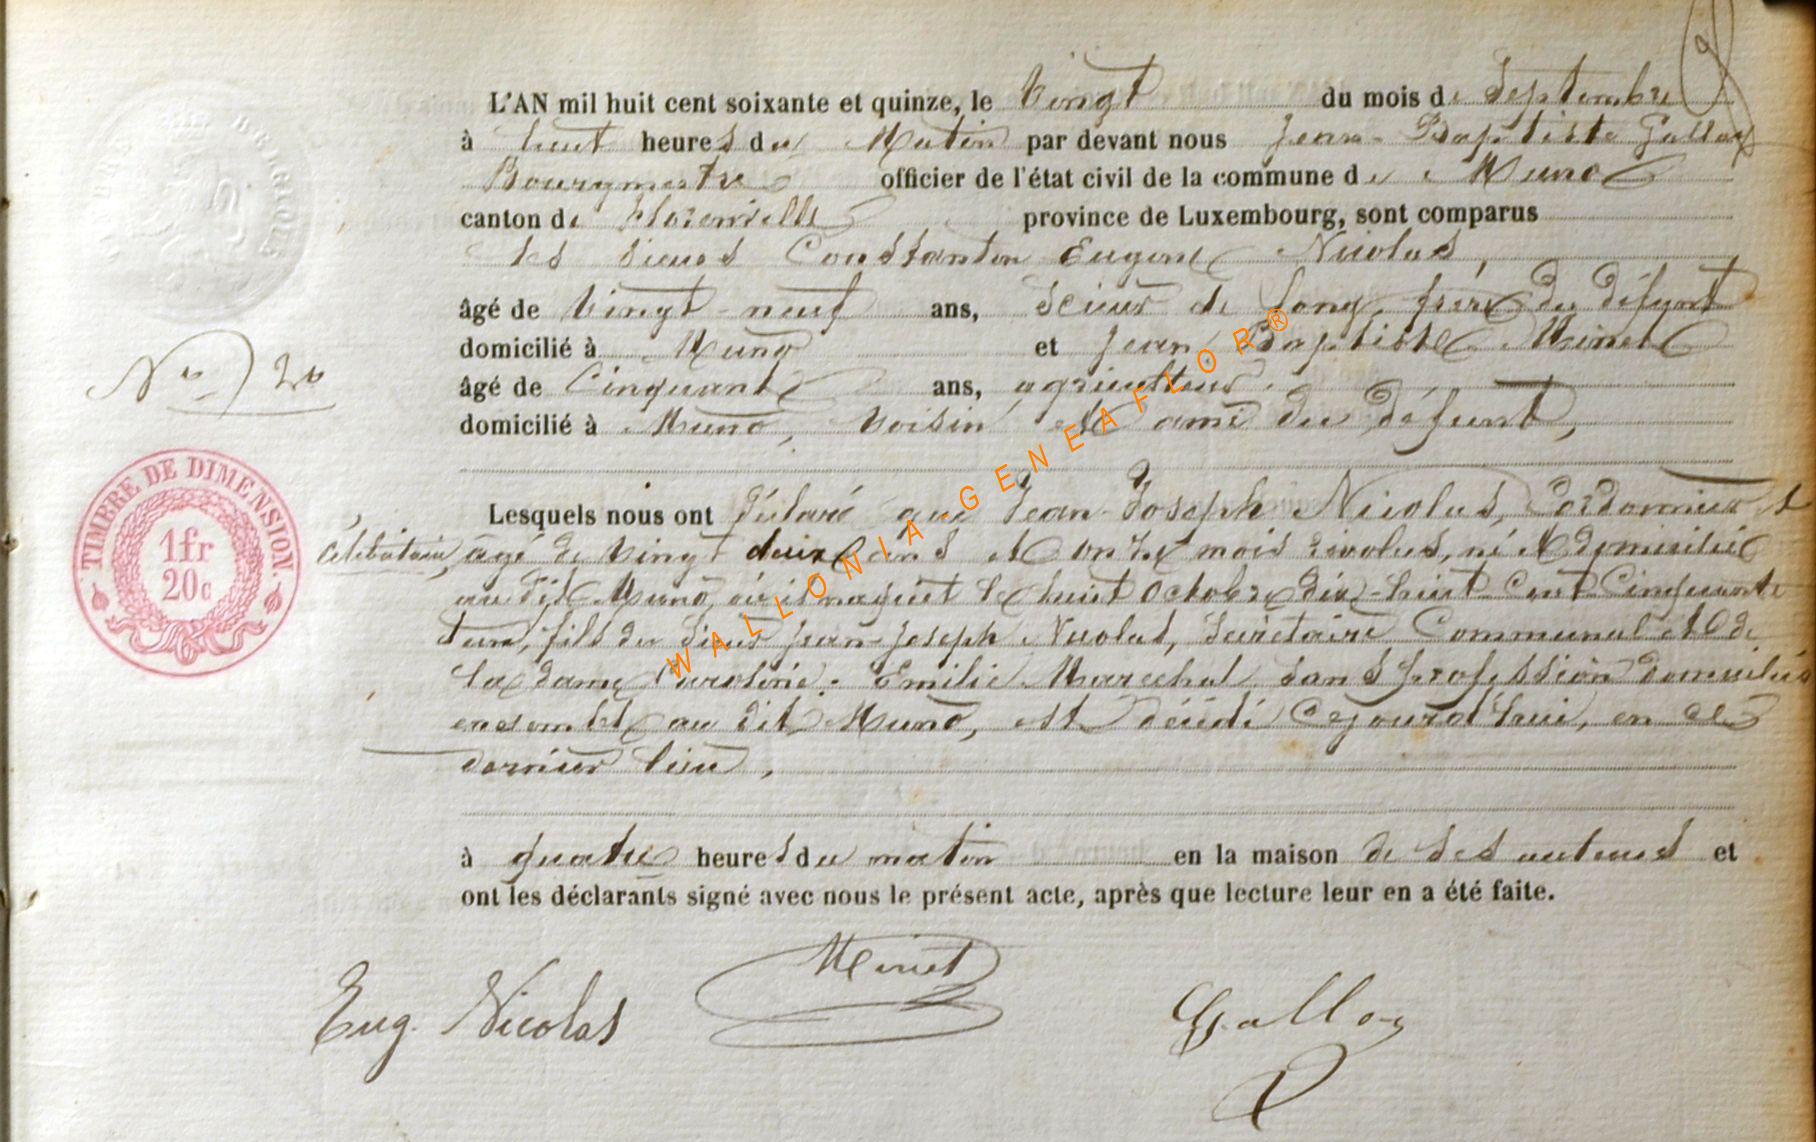 L'AN mil huit cent soixante et quinze, le Vingt du mois de Septembre
à huit heures du Matin par devant nous Jean-Baptiste Galloy
Bourgmestre officier de l'état civil de la commune de Muno
canton de Florenville province de Luxembourg, sont comparus
les sieurs Constantin Eugene Nicolas,
âgé de Vingt-neuf ans, Scieur de long, frere du défunt
domicilié à Muno et Jean Baptiste Minet
N° 20
âgé de Cinquante ans, agriculteur
domicilié à Muno, Voisin et ami du défunt,
TIMBRE DE DIMENSION.
1fr
20c
Lesquels nous ont Déclaré que Jean-Joseph Nicolas, Cordonnier &
célibataire, agé de Vingt deux ans et onze mois révolus, né et domicilié
au dit Muno, où il naquit le huit Octobre dix-huit Cent Cinquante
deux, fils du Sieur Jean-Joseph Nicolas, Secrétaire Communal et de
la dame Caroline-Emilie Marechal, sans profession domiciliés
ensemble au dit Muno, est décédé Cejourd'hui, en ce
dernier lieu,
à quatre heures du matin en la maison de ses auteurs et
ont les déclarants signé avec nous le présent acte, après que lecture leur en a été faite.
Eug. Nicolas Minet Galloy
WALLONIA-GENEAFLOR®